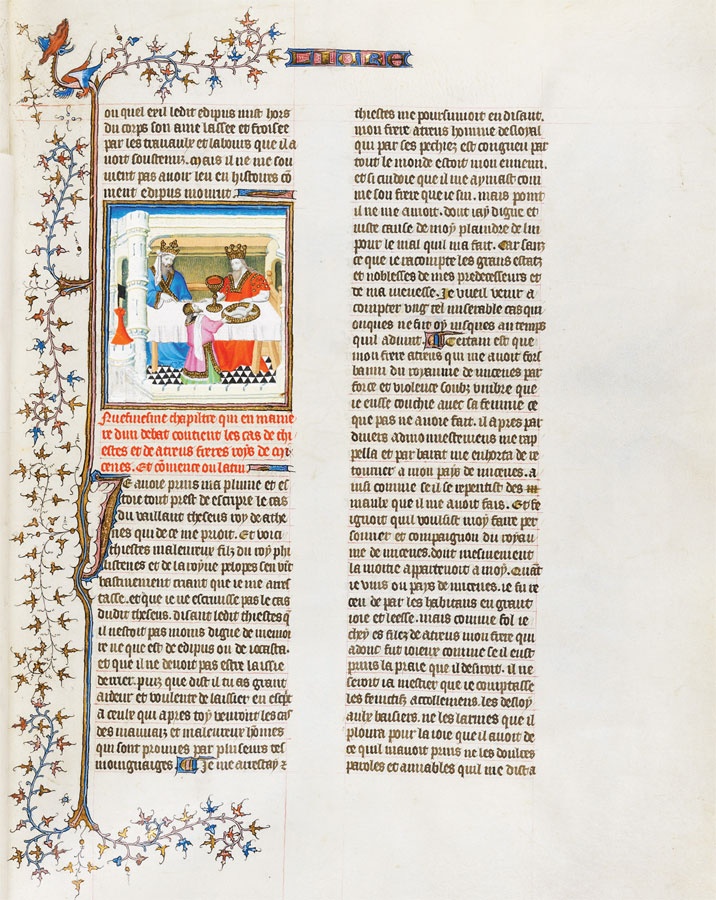 ou quel exil ledit edipus mist hors
du corps son ame lassee et froissee
par les travaulx et labours que il a
voit soustenuz. Mais il ne me sou
vient pas avoir leu en histoires co
ment edipus mourut.
chapiltre qui en manie
re dun debat contient les cas de thi
estes et de atreus freres roys de mi
cenes. Et comence ou latin
Je avoie prins ma plume et es
toie tout prest de escripre le cas
du vaillant theseus roy de athe
nes qui de ce me prioit. Et voici
thiestes maleureux filz du roy phi
et de la royne pelopes sen vint
hastivement criant que ie me arres
tasse. et que ie ne escrivisse pas le cas
dudit theseus. disant ledit thiestes q
il nestoit pas moins digne de memoi
re ne que est de edipus ou de iocasta.
et que il ne devoit pas estre laissie
derrier. puis que dist il tu as grant
ardeur et voulente de laissier en escpt
a ceulx qui apres toy venront les cas
des mauvaiz et maleureux homes
qui sont prouvez par pluseurs tes
moingnaiges. Je me arrestay z
thiestes me poursuivoit en disant.
mon frere atreus homme desloyal
qui par ses pechiez est congneu par
tout le monde estoit mon ennemi.
et si cuidoie que il me aymast com
me son frere que ie sui. mais point
il ne me amoit. dont iay digne et
iuste cause de moy plaindre de lui
pour le mal quil ma fait. Car sanz
ce que ie racompte les grans estatz
et noblesses de mes predecesseurs et
de ma ieunesse. Je vueil venir a
compter ung tel miserable cas qui
onques ne fut oy iusques au temps
quil advint. Certain est que
mon frere atreus qui me avoit fors
banni du royaume de micenes par
force et violence soubz umbre que
ie eusse couchie avec sa femme ce
que pas ne avoie fait. il apres par
divers admonnestemens me rap
pella et par barat me enhorta de re
tourner a mon pays de micenes. a
insi comme se il se repentist des
maulx que il me avoit fais. Et fe
ignoit quil voulsist moy faire per
sonnier et compaignon du royau
me de micenes. dont mesmement
la moitie appartenoit a moy. Quant
ie vins ou pays de micenes. ie fu re
ceu de par les habitans en grant
ioie et leesse. mais comme fol ie
chey es filez de atreus mon frere qui
adonc fut ioieux comme se il eust
prins la proie que il desiroit. il ne
seroit ia mestier que ie comptasse
les feintifz accollemens. les desloy
aulx baisiers. ne les larmes que il
ploura pour la ioie que il avoit de
ce quil mavoit prins ne les doulces
paroles et amiables quil me dist a